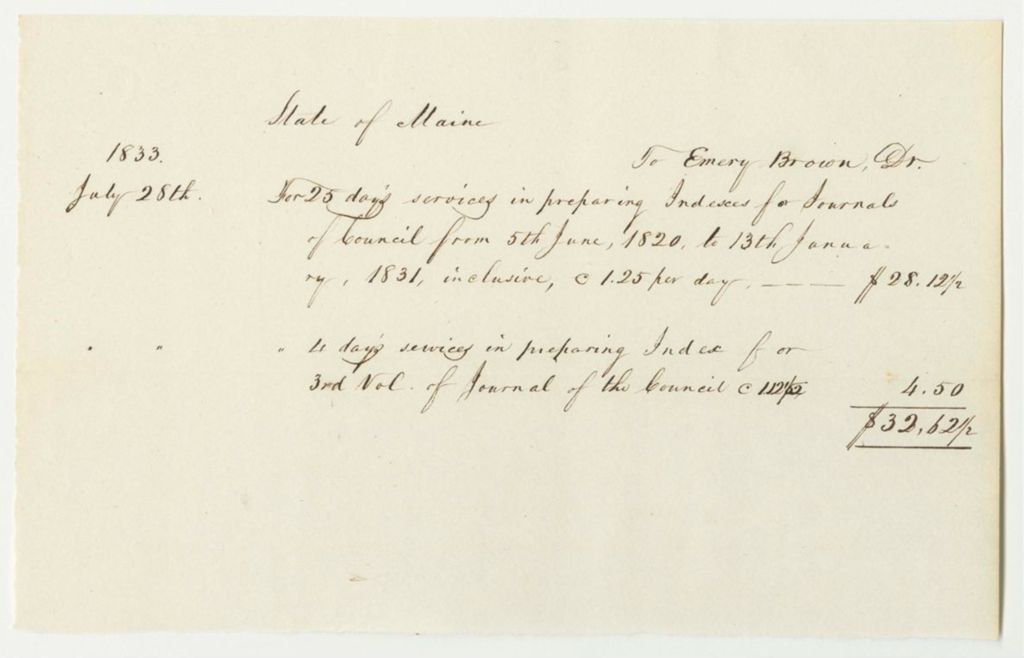 State of Maine
1833.
To Emery Brown, Dr.
July 28th. For 25 days services in preparing Indexes for Journals
of Council from 5th June, 1820, to 13th, Janua-
ry, 1831, inclusive, @ 1.25 per day, — — — $28.12½
" " " 4 days services in preparing Index for
3rd Vol. of Journal of the Council @ 1.12½ 4.50
$32,62½